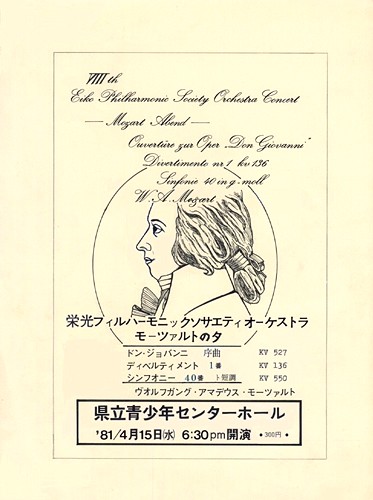 VIIIth
Eiko Philharmonic Society Orchestra Concert
— Mozart Abend —
Ouvertüre zur Oper „Don Giovanni"
Divertimento nr 1 kv 136
Sinfonie 40 in g-moll
W. A. Mozart
栄光フィルハーモニックソサエティオーケストラ
モーツァルトの夕
ドン・ジョバンニ 序曲 KV 527
ディベルティメント 1番 KV 136
シンフォニー 40番 ト短調 KV 550
ヴオルフガング・アマデウス・モーツァルト
県立青少年センターホール
'81/4月15日㈬ 6:30pm開演 •300円•